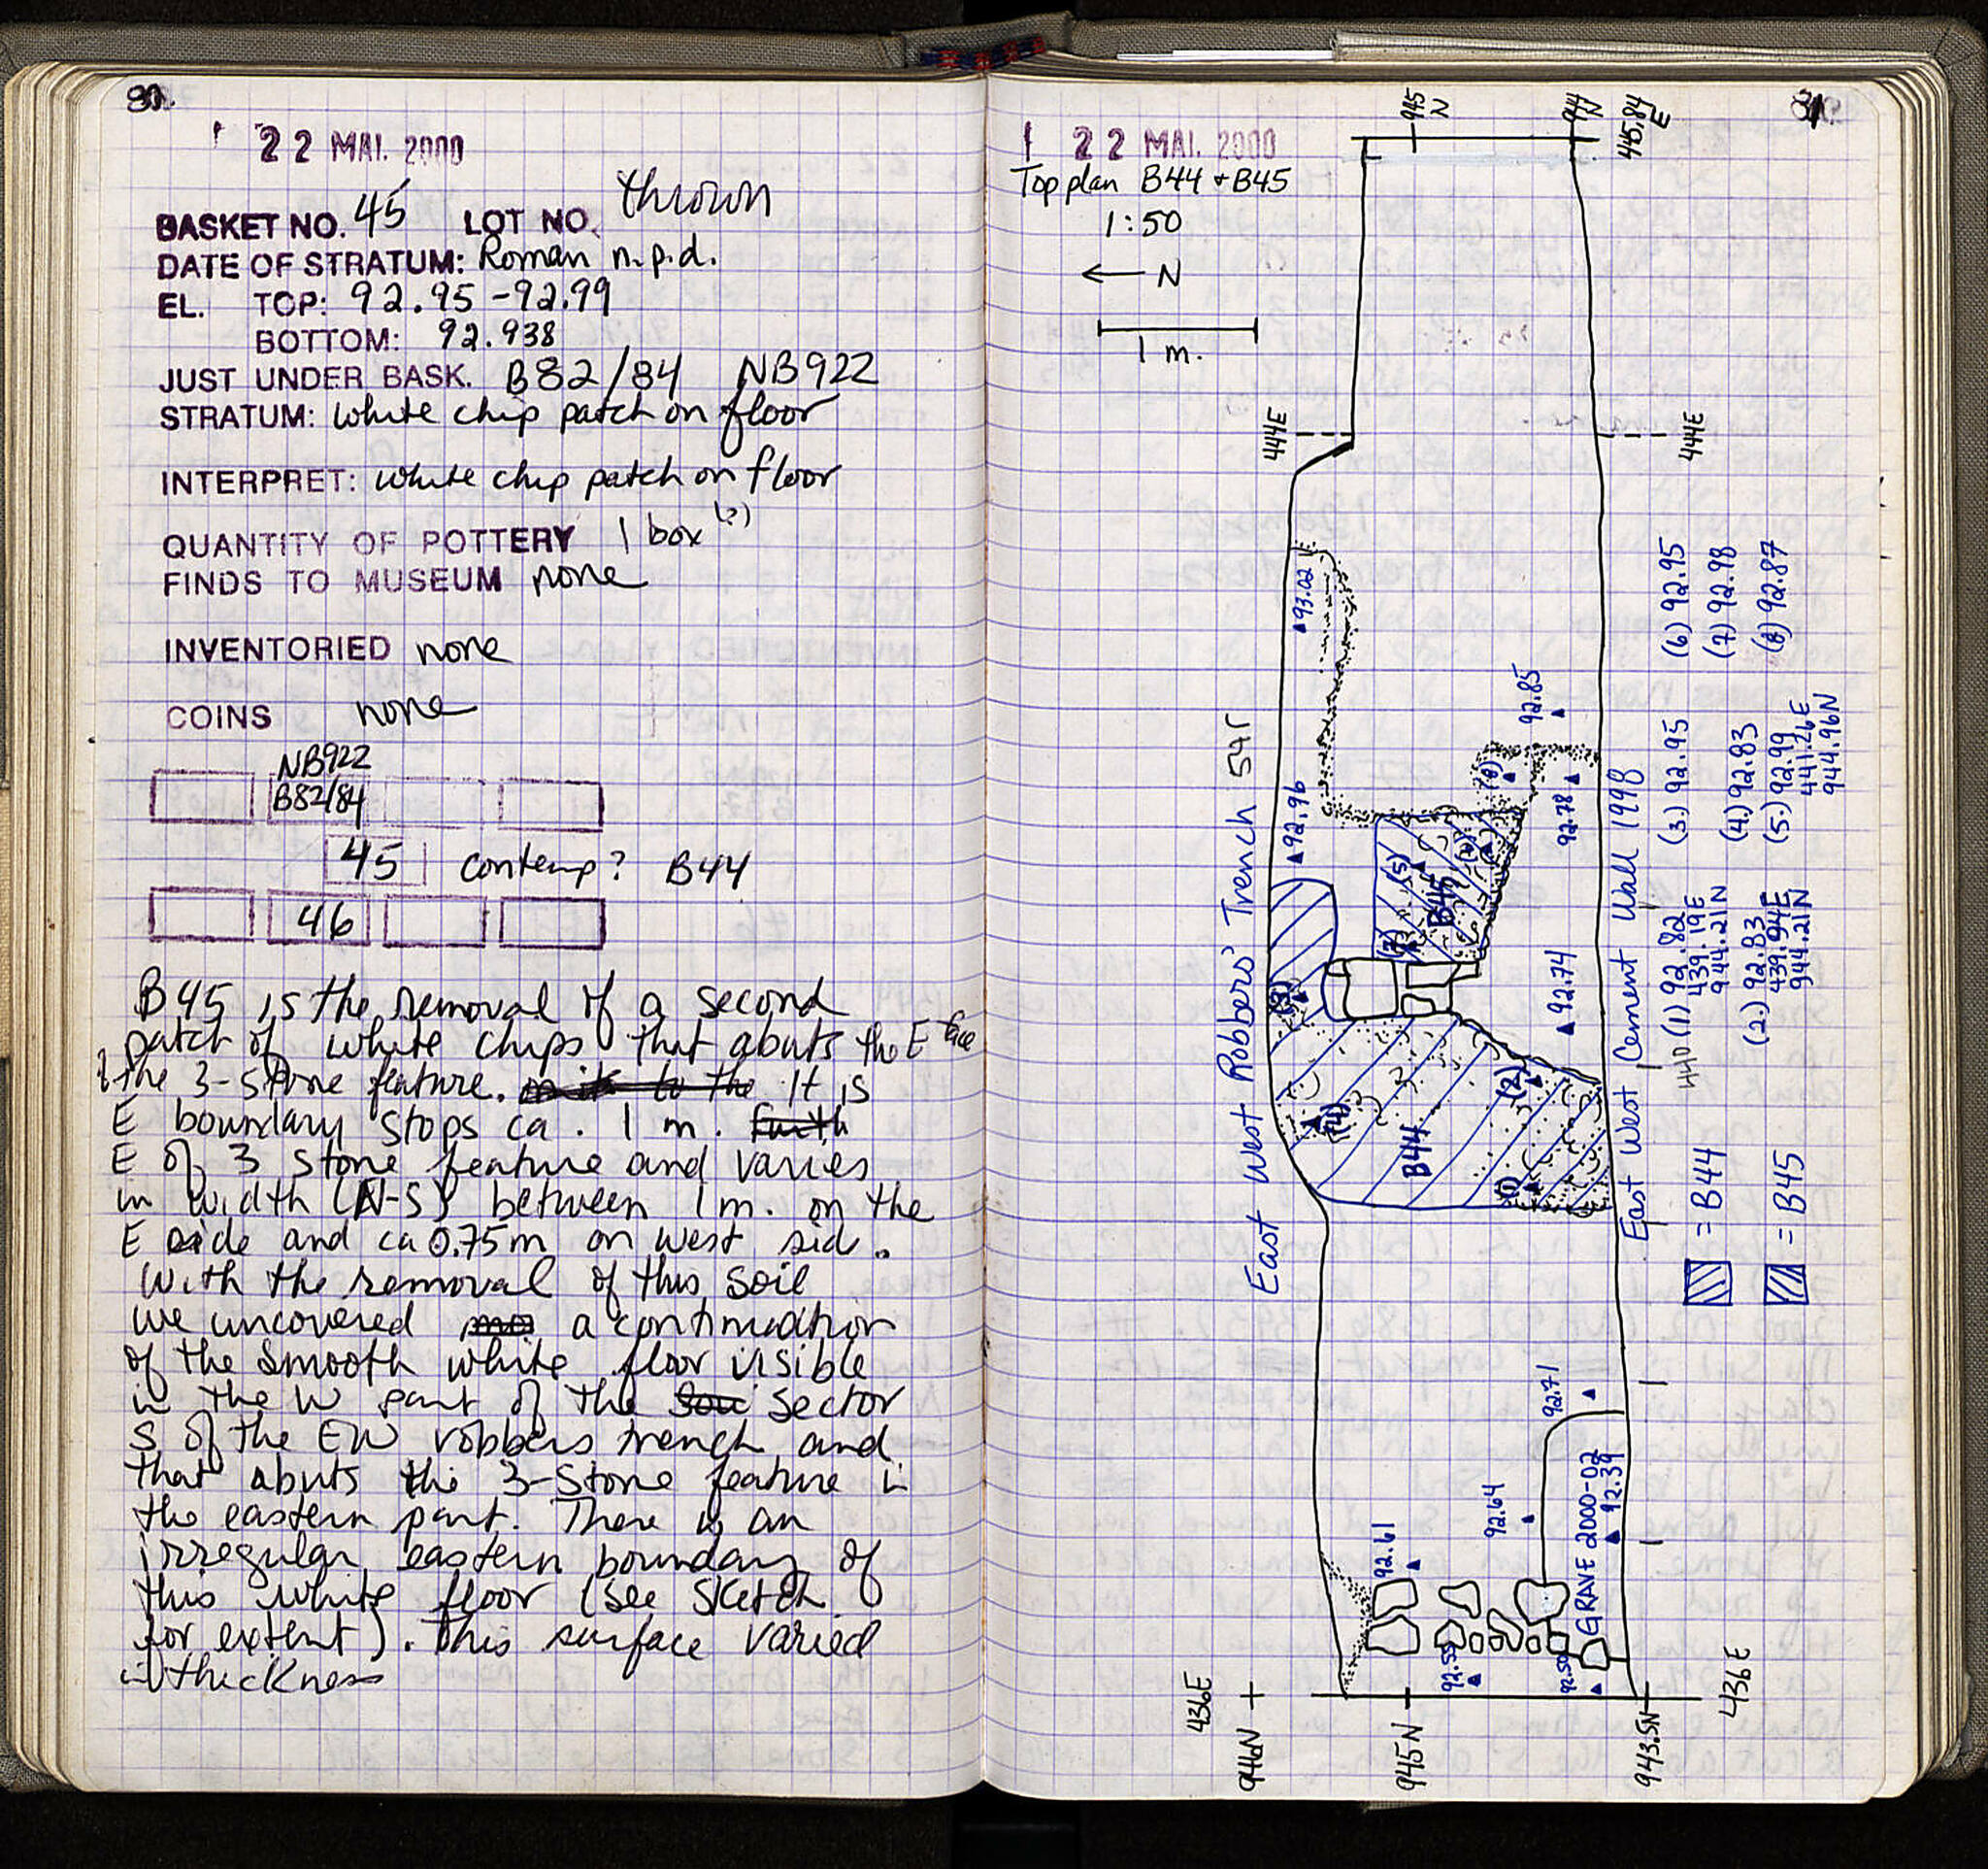 80.
22 MAI. 2000
thrown
BASKET NO. 45 LOT NO.
DATE OF STRATUM: Roman n.p.d.
EL. TOP: 92.95 - 92.99
BOTTOM: 92.938
JUST UNDER BASK. B82/84 NB922
STRATUM: white chip patch on floor
INTERPRET: white chip patch on floor
QUANTITY OF POTTERY 1 box (2)
FINDS TO MUSEUM none
INVENTORIED none
COINS none
NB922
B82/84
45 contemp? B44
46
B45 is the removal of a second
patch of white chips that abuts the E face
of the 3-stone feature. It is
E boundary stops ca. 1 m.
E of 3 stone feature and varies
in width (N-S) between 1 m. on the
E side and ca 0.75m on west side.
With the removal of this soil
we uncovered a continuation
of the smooth white floor visible
in the W part of the sector
S of the EW robbers trench and
that abuts the 3-stone feature in
the eastern part. There is an
irregular eastern boundary of
this white floor (see sketch
for extent). This surface varied
in thickness
81.
22 MAI. 2000
Top plan B44 + B45
1:50
← N
1 m.
945 N
944 N
445.84 E
444E
444E
93.02
92.85
92.96
92.78
(8)
(5)
(6)
B45
(7)
(3)
92.74
(4)
(2)
B44
(1)
East West Robbers' Trench 54r
East West Cement Wall 1998
440
(1) 92.82
439.19E
944.21N
(2.) 92.83
439.94E
944.21N
(3.) 92.95
(4.) 92.83
(5.) 92.99
441.26E
944.96N
(6) 92.95
(7) 92.98
(8) 92.87
= B44
= B45
92.71
92.64
92.61
GRAVE 2000-02
92.39
92.55
92.50
436E
946N
945N
943.5N
436E